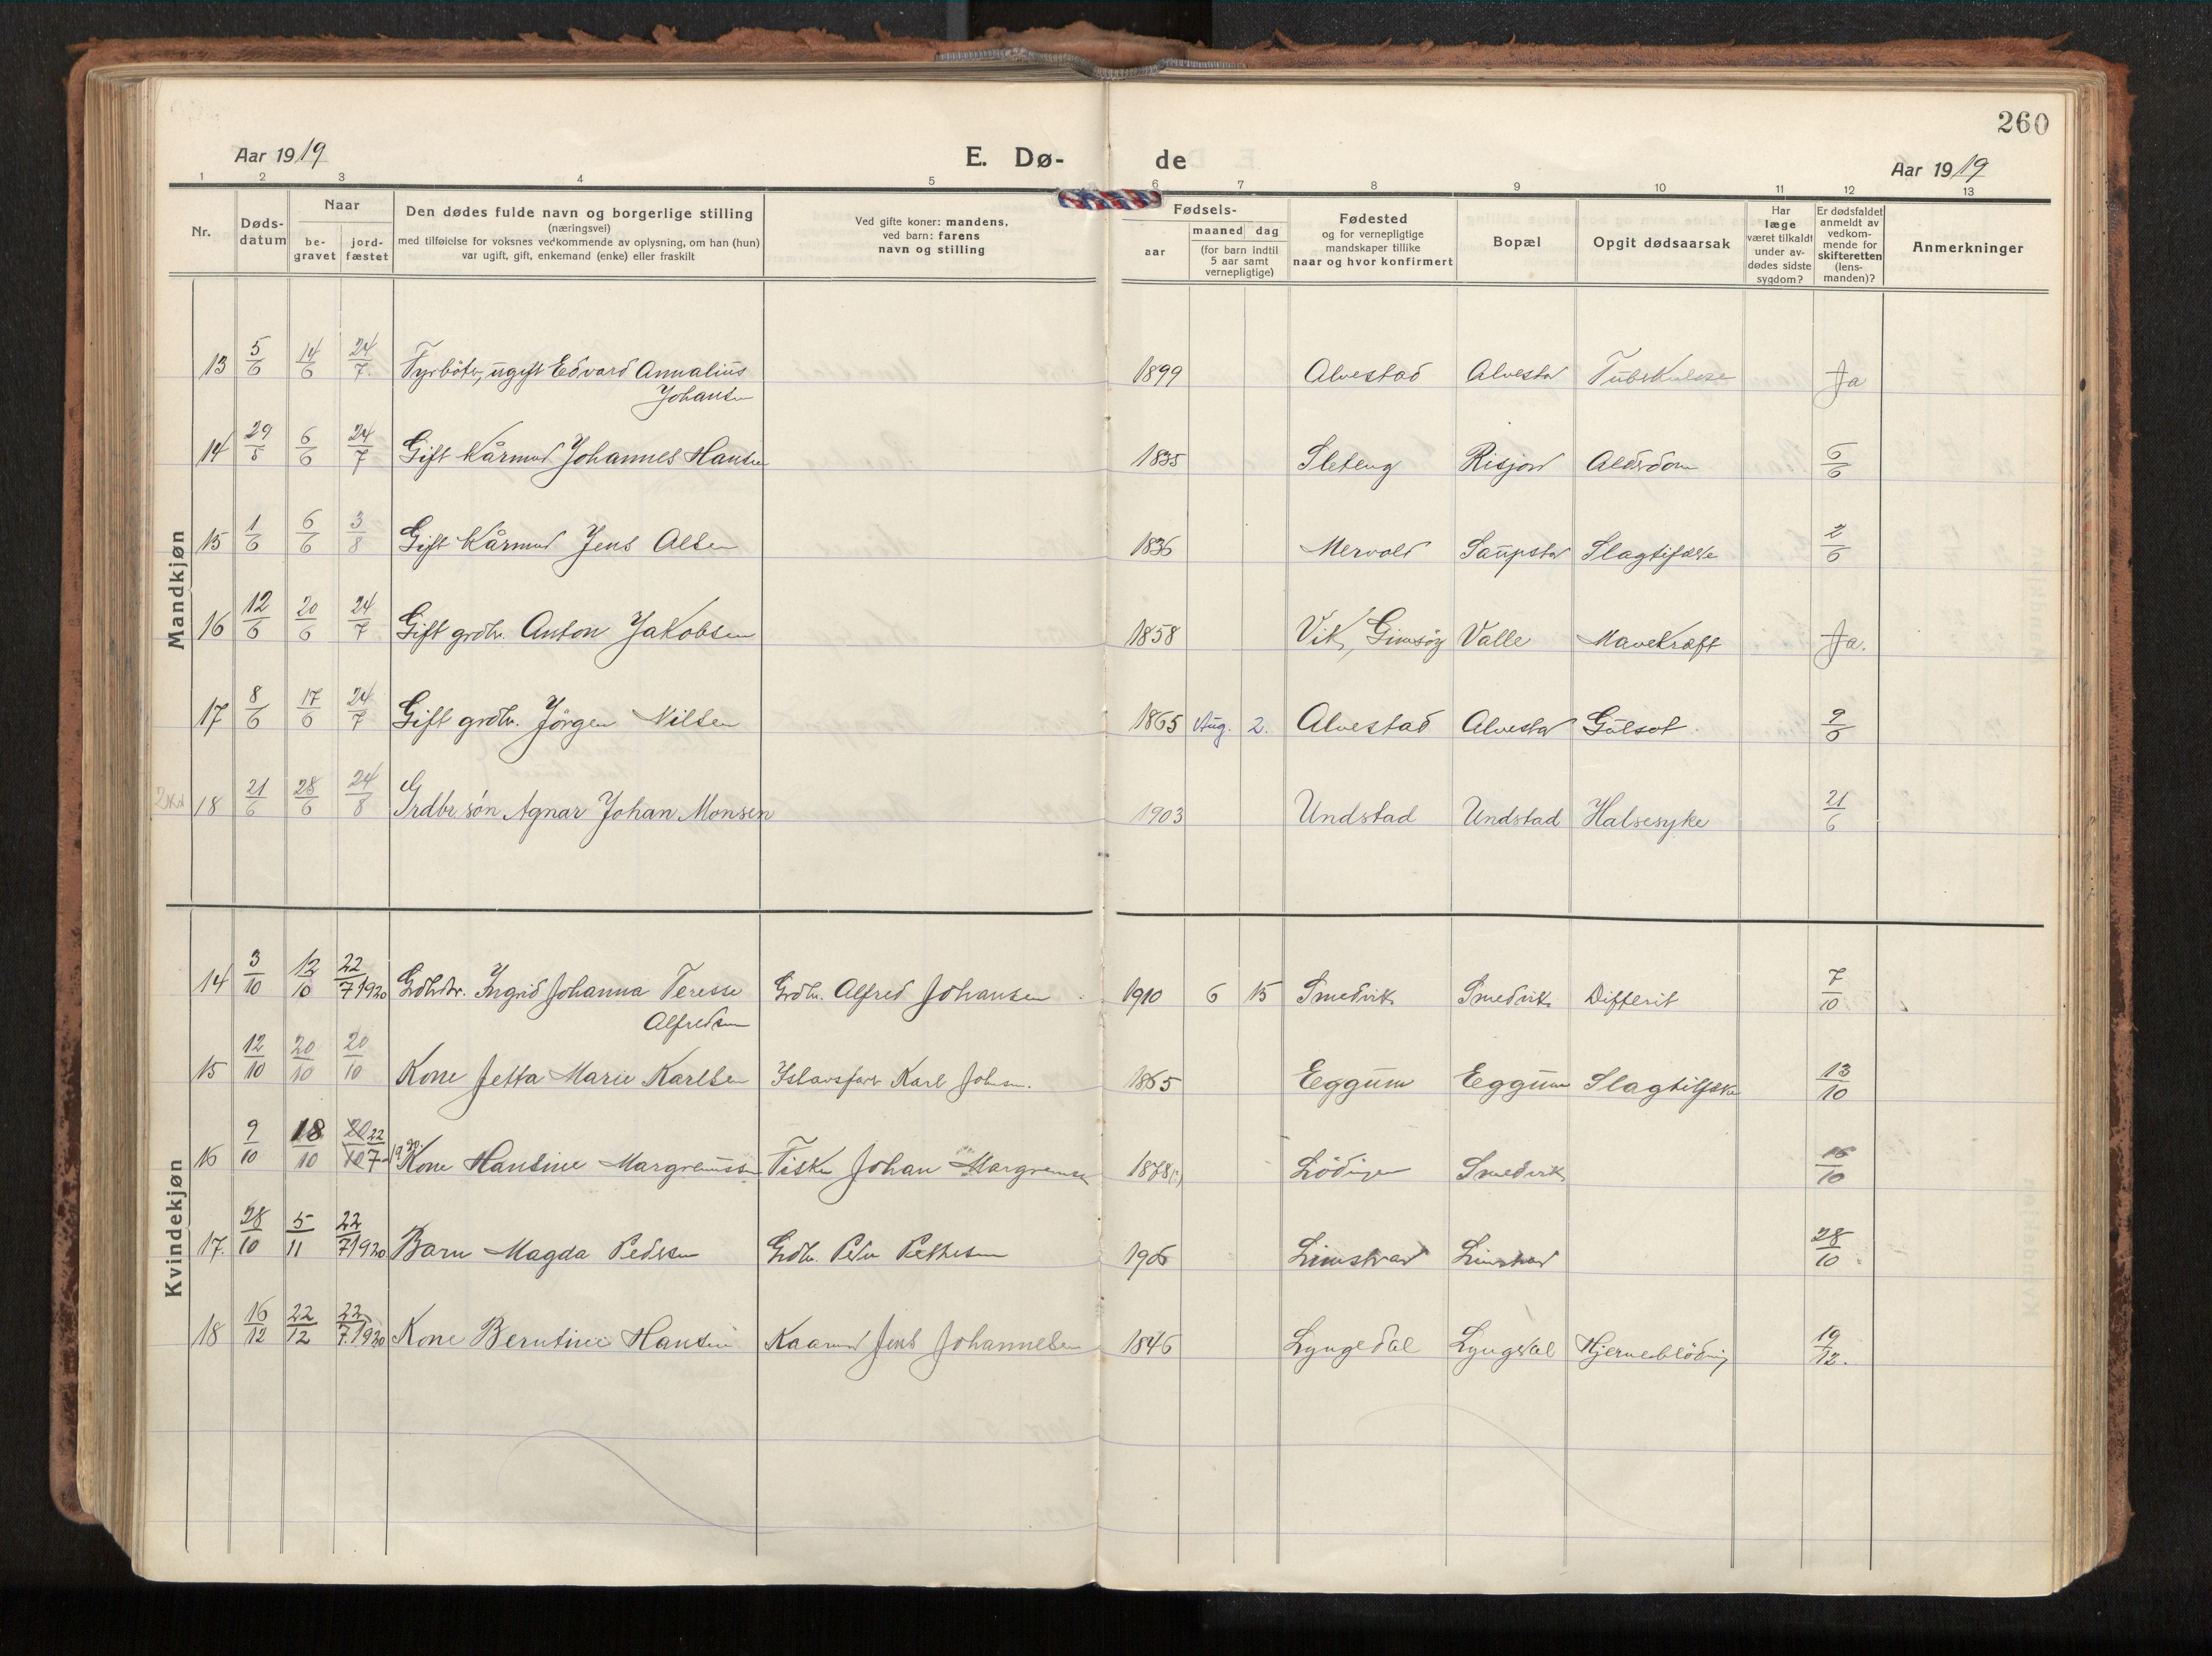 260
Aar 1919
E. Dø-
de
Aar 1919
1 2 3 4 5 6 7 8 9 10 11 12 13
Nr.
Døds-
datum
Naar
be-
gravet
jord-
fæstet
Den dødes fulde navn og borgerlige stilling
(næringsvei)
med tilføielse for voksnes vedkommende av oplysning, om han (hun)
var ugift, gift, enkemand (enke) eller fraskilt
Ved gifte koner: mandens,
ved barn: farens
navn og stilling
Fødsels-
aar
maaned dag
(for barn indtil
5 aar samt
vernepligtige)
Fødested
og for vernepligtige
mandskaper tillike
naar og hvor konfirmert
Bopæl
Opgit dødsaarsak
Har
læge
været tilkaldt
under av-
dødes sidste
sygdom?
Er dødsfaldet
anmeldt av
vedkom-
mende for
skifteretten
(lens-
manden)?
Anmerkninger
Mandkjøn
13 5/6 14/6 24/7 Fyrbøter, ugift Edvard Annalius 1899 Alvestad Alvestad Tuberkulose Ja
Johansen
14 29/5 6/6 24/7 Gift Kårmand Johannes Hansen 1835 Sleteng Risjord Alderdom 6/6
15 1/6 6/6 3/8 Gift Kårmand Jens Olsen 1836 Mervold Saupstad 2/6
16 12/6 20/6 24/7 Gift grdbr. Anton Jakobsen 1858 Vik, Gimsöy Valle Mavekræft Ja.
17 8/6 17/6 24/7 Gift grdbr. Jörgen Nilsen 1865 Aug. 2. Alvestad Alvestad Gulsot. 9/6
18 21/6 28/6 24/8 Grdbr. søn Agnar Johan Monsen 1903 Undstad Undstad Halsesyke 21/6
Kvindekjøn
14 3/10 12/10 22/7 1920 Grdbrdtr. Ingrid Johanna Teresse Grdbr. Alfred Johansen 1910 6 15 Smedvik Smedvik Difterit 7/10
Alfredsen
15 12/10 20/10 20/10 Kone Jetta Marie Karlsen Karl Johnsen. 1865 Eggum Eggum 13/10
16 9/10 18/10 20/10 22/7 1920. Kone Hansine Margrensen Fisker Johan Margrensen 1878(?) Lödingen Smedvik 16/10
17. 28/10 5/11 22/7 1920 Barn Magda Pedersen Grdbr. Peder Pettersen 1906 Limstrand Limstrand 28/10
18 16/12 22/12 22/7. 1920 Kone Berntine Hansen Kaarmand Jens Johannesen 1846 Lyngedal Lyngedal Hjerneblödning 19/12.